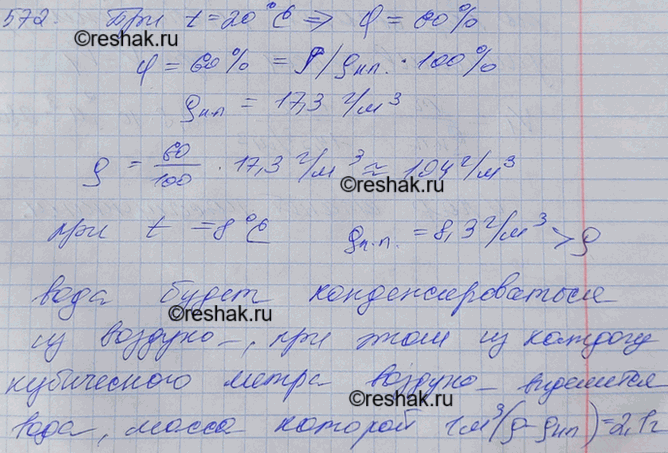 572 При t = 20°С ⇒ φ = 60%
©reshak.ru
φ = 60% = ρ/ρн.п. · 100%
ρн.п. = 17,3 г/м³
ρ = 60/100 · 17,3 г/м³ ≈ 10,4 г/м³
©reshak.ru
при t = 8°С ρн.п. = 8,3 г/м³ > ρ
©reshak.ru
вода будет конденсироваться
из воздуха, при этом из каждого
кубического метра воздуха выделится
©reshak.ru
вода, масса которой 1м³(ρ-ρнп)=2,1г